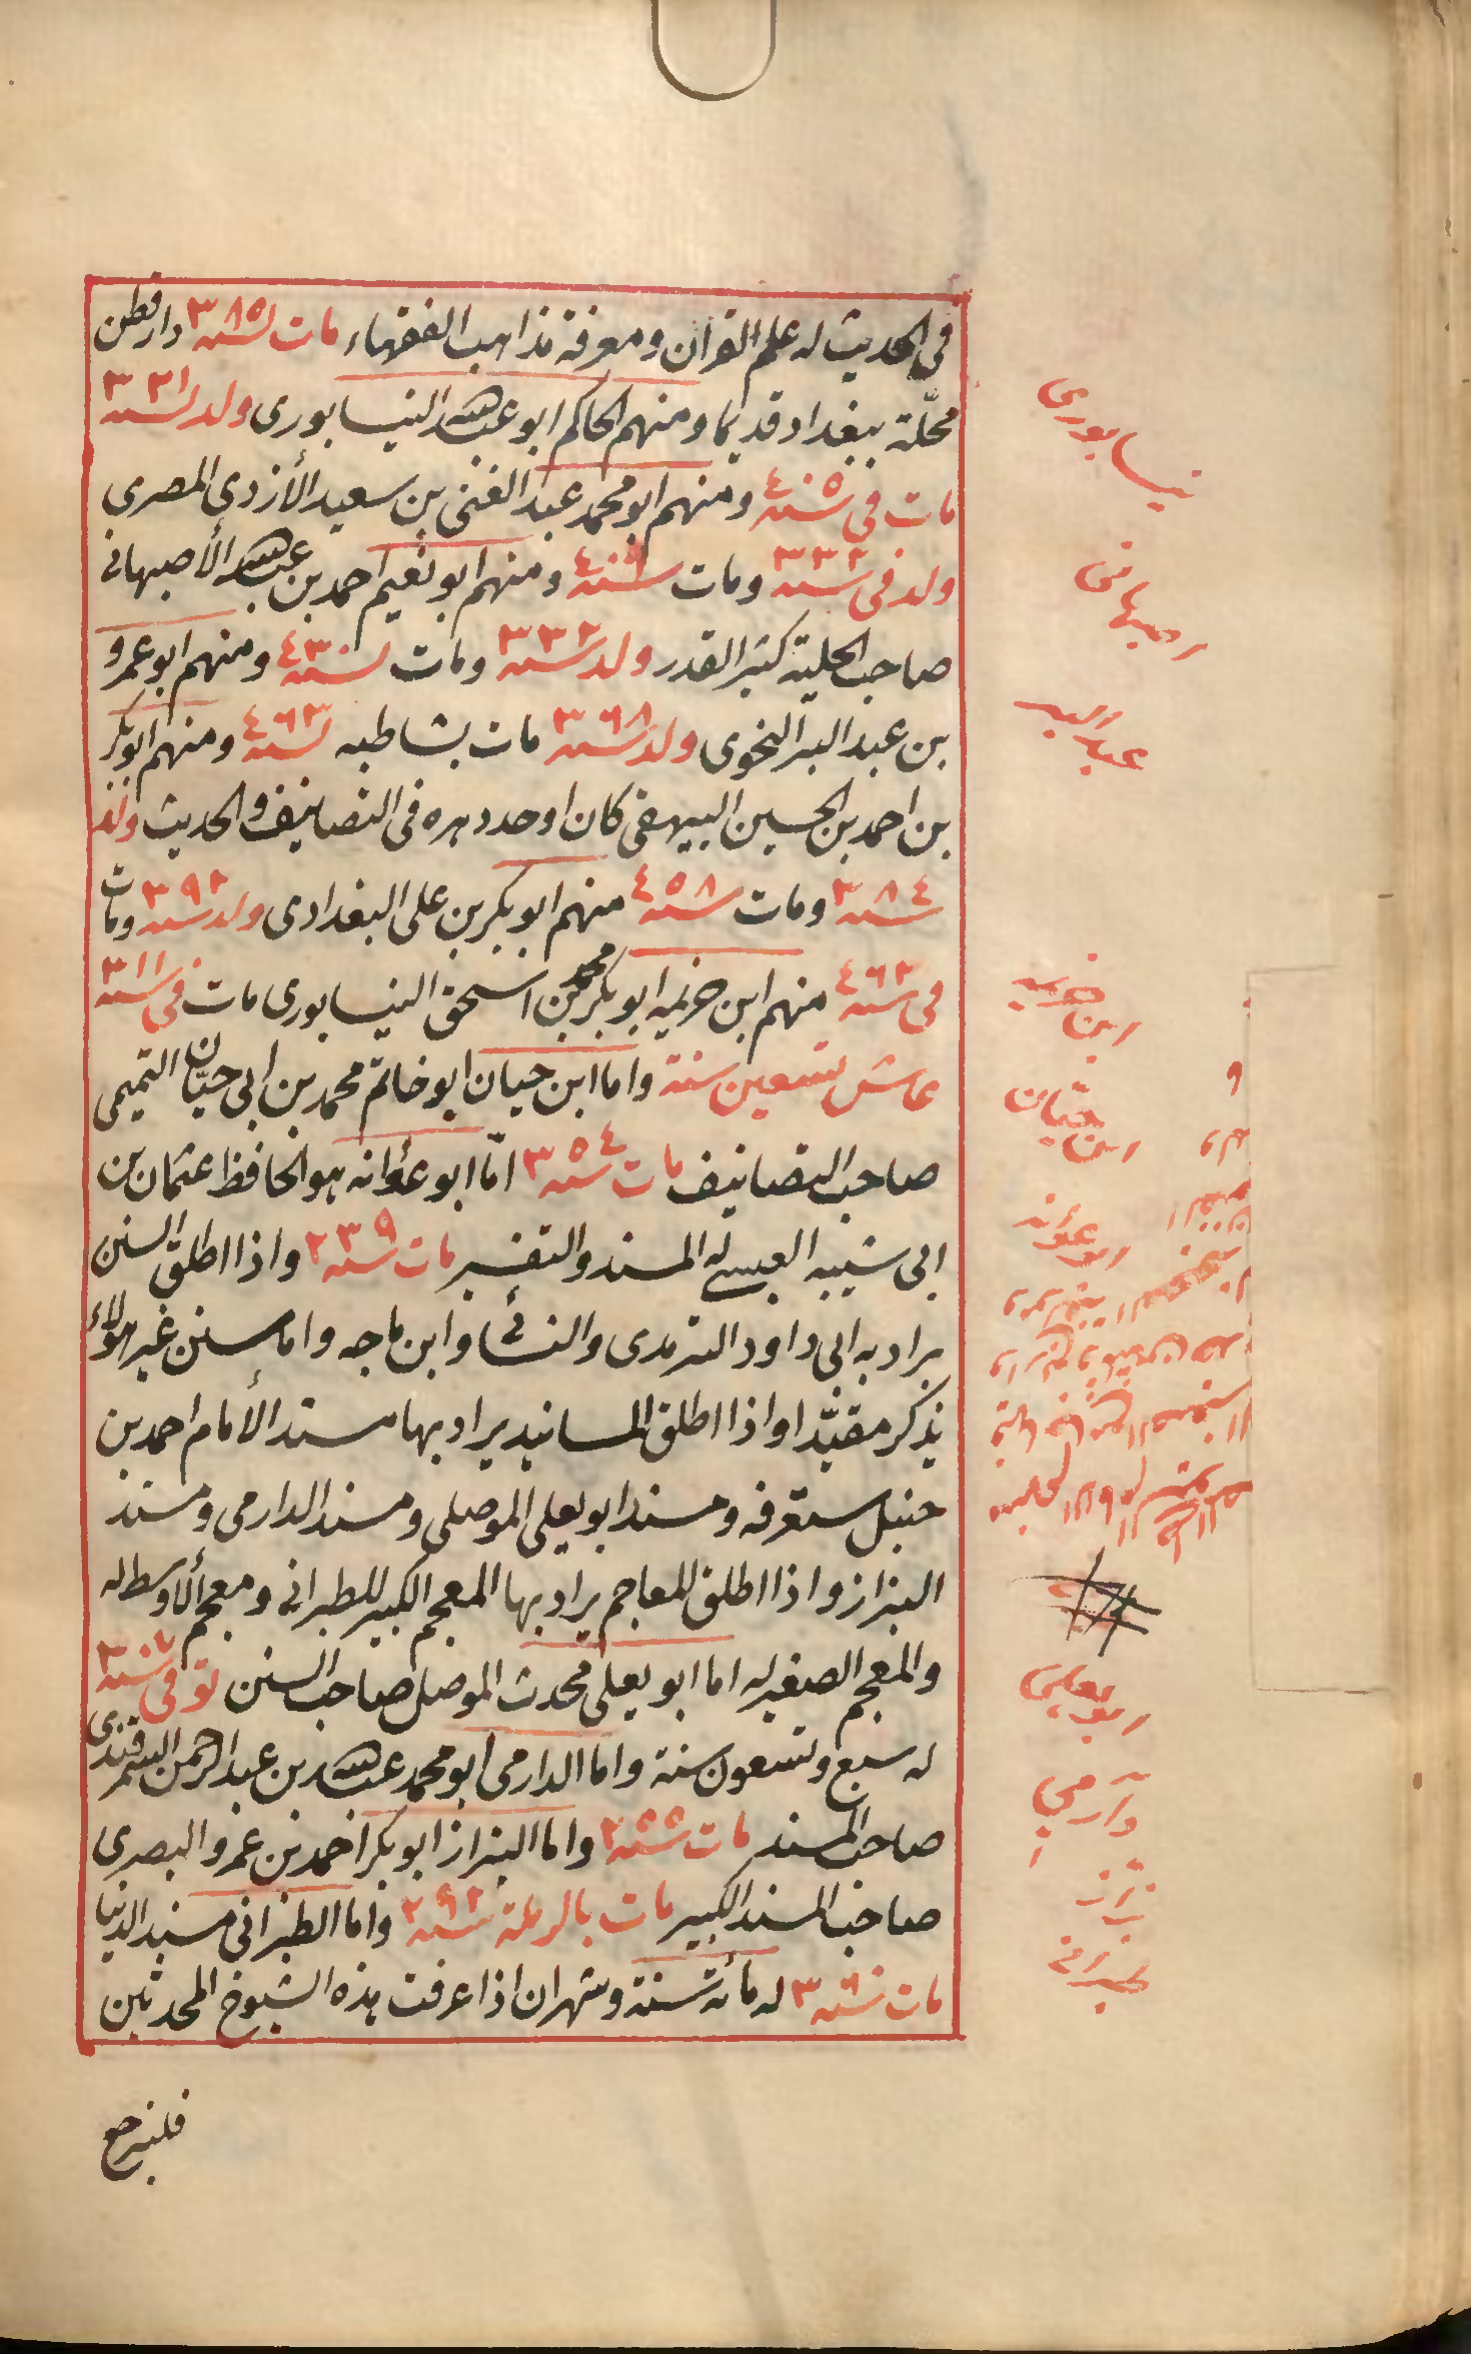 في الحديث له علم القرآن ومعرفة مذاهب الفقهاء مات سنه ٣٨٥ دار قطن
محلّة ببغداد قديما ومنهم الحاكم ابو عبد الله النيسابورى ولد سنه ٣٢١
مات في سنه ٤٠٥ ومنهم ابو محمد عبد الغنى بن سعيد الأزدى المصرى
ولد في سنه ٣٣٢ ومات سنه ٤٠٩ ومنهم ابو نعيم احمد بن عبد الله الأصبهانى
صاحب الحلية كبير القدر ولد سنه ٣٣٢ ومات سنه ٤٣٠ ومنهم ابو عمرو
بن عبد البر النحوى ولد سنه ٣٦٨ مات بشاطبه سنه ٤٦٣ ومنهم ابو بكر
بن احمد بن الحسين البيهقى كان اوحد دهره فى التصانيف والحديث ولد
سنه ٣٨٤ ومات سنه ٤٥٨ منهم ابو بكر بن على البغدادى ولد سنه ٣٩٢ ومات
في سنه ٤٦٣ منهم ابن خزيمه ابو بكر محمد بن اسحق النيسابورى مات في سنه ٣١١
عاش تسعين سنة واما ابن حيان ابو خاتم محمد بن ابى حيّان التميمى
صاحب التصانيف مات سنه ٣٥٤ امّا ابو عؤانه هو الحافظ عثمان بن
ابى شيبه العبسى له المسند والتفسير مات سنه ٢٣٩ واذا اطلق السنن
يراد به ابى داود الترمدى والنسائى وابن ماجه واما سنن غير هؤلاء
يذكر مقيّدا واذا اطلق المسانيد يراد بها مسند الأمام احمد بن
حنبل ستعرفه ومسند ابو يعلى الموصلى ومسند الدارمى ومسند
البزاز واذا اطلق المعاجم يراد بها المعجم الكبير للطبرانى ومعجم الأوسط له
والمعجم الصغير له اما ابو يعلى محدث الموصل صاحب السنن توفى سنه ٣٠٧
له سبع وتسعون سنة واما الدارمى ابو محمد عبد الله بن عبد الرحمن السمرقندى
صاحب المسند مات سنه ٢٥٥ واما البزاز ابو بكر احمد بن عمرو البصرى
صاحب المسند الكبير مات بالرملة سنه ٢٩٢ واما الطبرانى مسند الدنيا
مات سنه ٣٦٠ له مأئة سنة وشهران اذا عرفت هذه الشيوخ المحدثين
فلنرجع
نيسابورى
اصبهانى
عبد البر
ابن خزيمه
ابن حيّان
ابو عؤانه
ابو يعلى
دارمى
بزاز
طبرانى